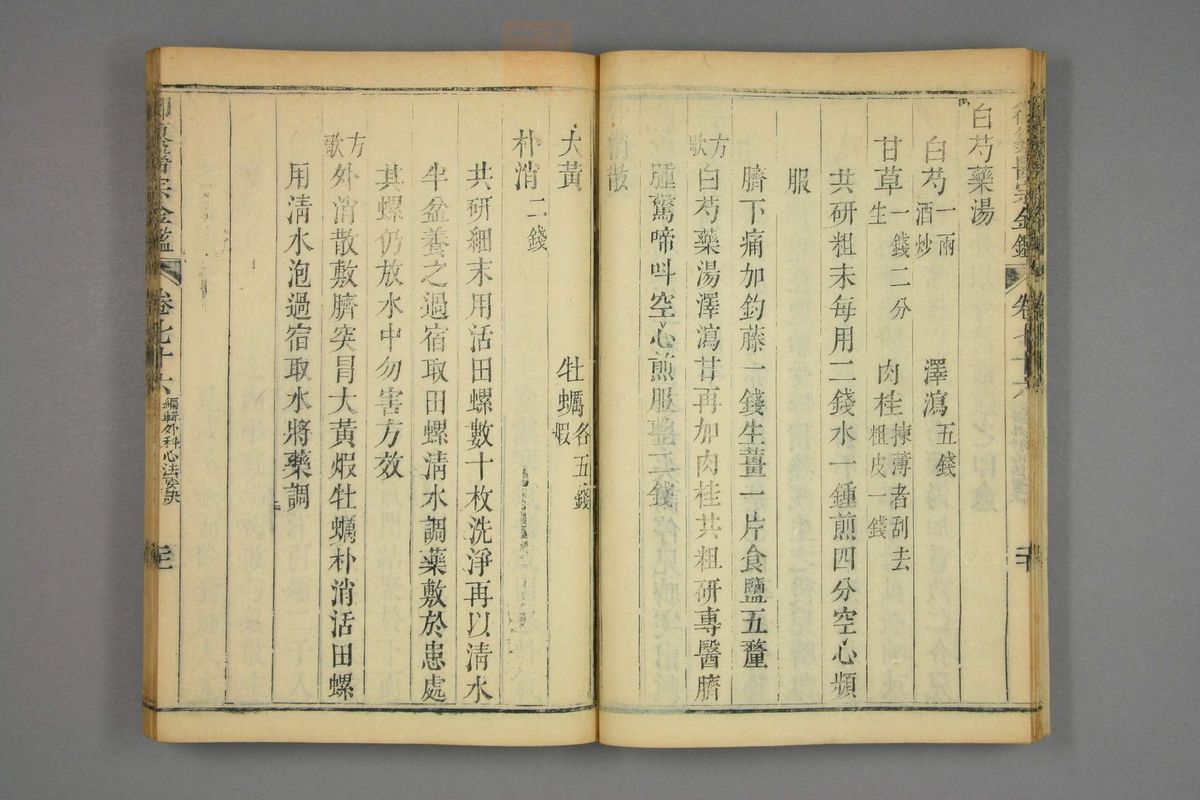 白芍藥湯
白芍一兩酒炒 澤瀉五錢
甘草一錢二分生 肉桂揀薄者刮去粗皮一錢
共研粗末每用二錢水一鍾煎四分空心頻
服
臍下痛加釣藤一錢生薑一片食鹽五釐
方歌白芍藥湯澤瀉甘再加肉桂共粗研專醫臍
腫驚啼呌空心煎服整二錢
消散
大黃 牡蠣各五錢煅
朴消二錢
共研細末用活田螺數十枚洗淨再以清水
半盆養之過宿取田螺清水調藥敷於患處
其螺仍放水中勿害方效
方歌外消散敷臍突冐大黃煆牡蠣朴消活田螺
用清水泡過宿取水將藥調
金鑑 卷七十六 編輯外科心法要訣